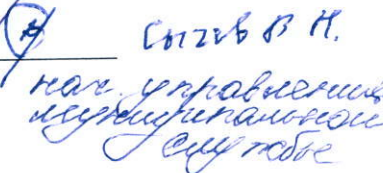 Сычев В Н.
нач. управления
муниципальной
службе